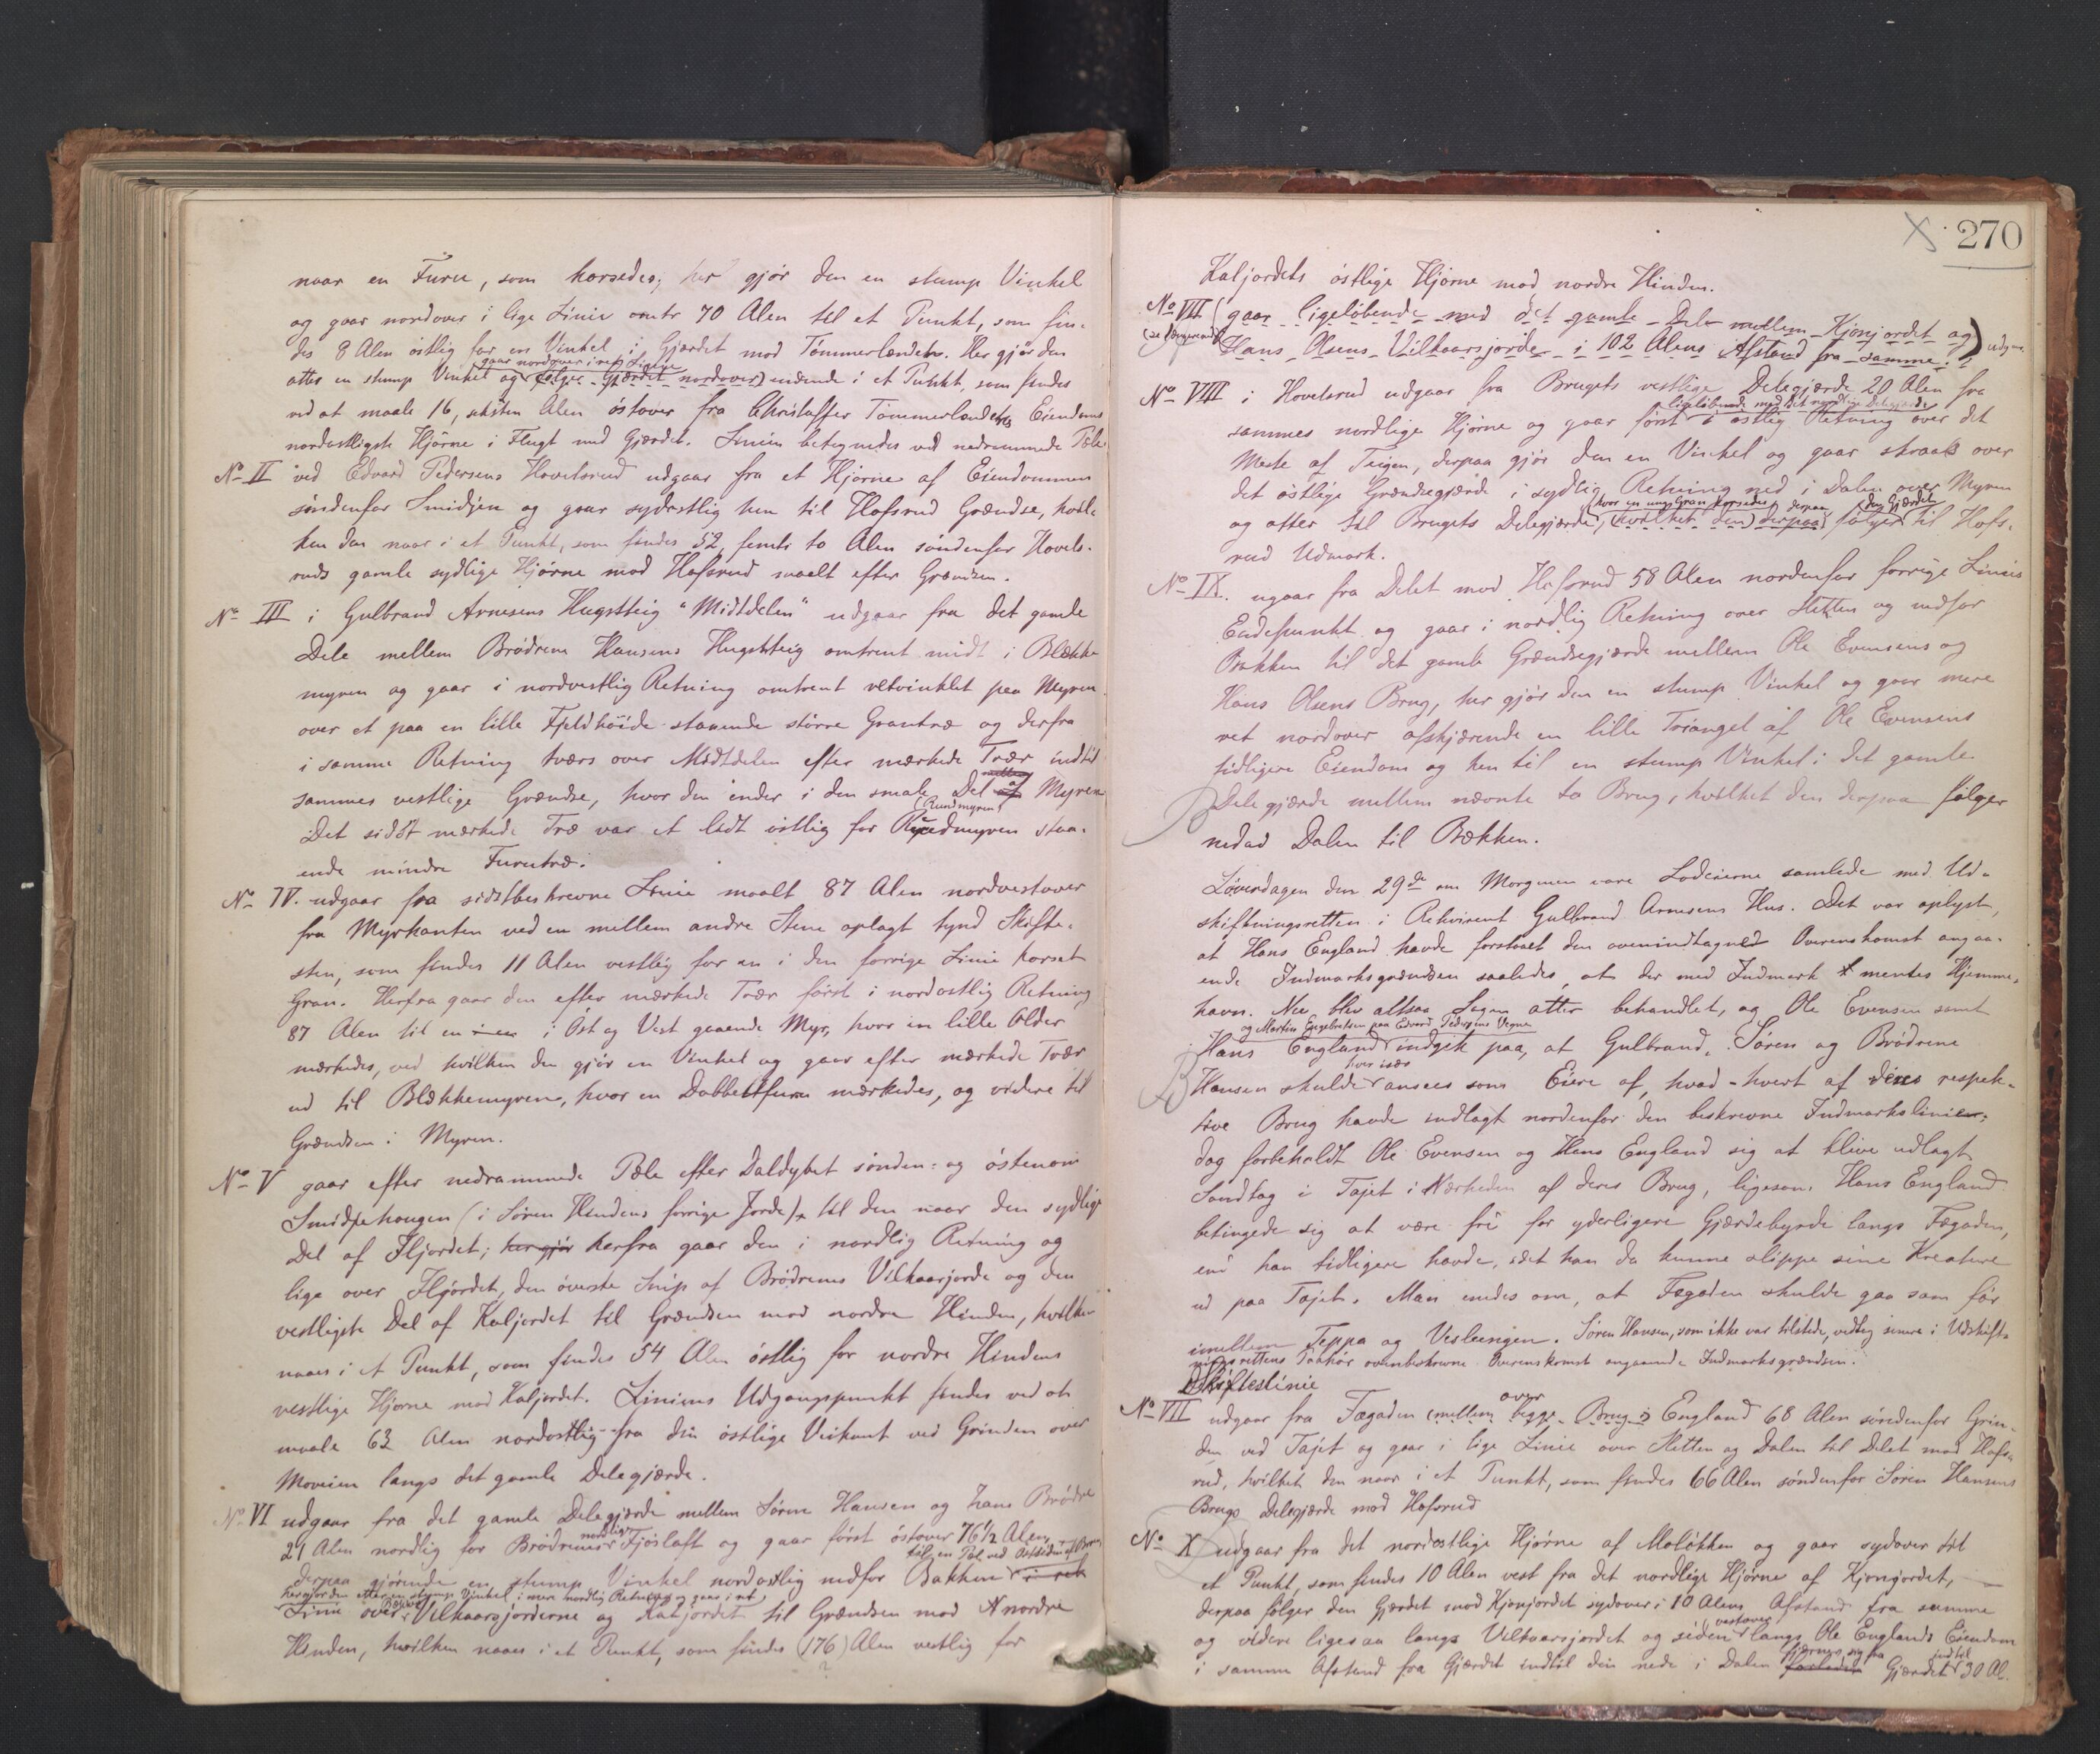 naar en Furu, som korsedes; her gjör den en stump Vinkel
og gaar nordover i lige Linie omtr 70 Alen til et Punkt, som fin-
des 8 Alen östlig for en Vinkel i Gjærdet mod Tömmerlandet. Her gjör den
gaar nordover i ret Ligelse
atter en stump Vinkel og (fölger Gjærdet nordover) endende i et Punkt, som findes
ved at maale 16, seksten Alen östover fra Christoffer Tömmerlandets Eiendoms
nordostligste Hjörne i Flugt med Gjærdet. Linien betegnedes ved nedrammede Pæle
No II ved Edvard Pedersens Hovelsrud udgaar fra et Hjörne af Eiendommen
söndenfor Smidjen og gaar sydostlig hen til Hofsrud Grændse, hvil-
ken den naar i et Punkt, som findes 52, femti to Alen söndenfor Hovels-
ruds gamle sydlige Hjörne mod Hofsrud maalt efter Grændsen.
No III i Gulbrand Arnesens Hugstteig "Midtdelen" udgaar fra det gamle
Dele mellem Brödrene Hansens Hugstteig omtrent midt i Blække
myren og gaar i nordvestlig Retning omtrent retvinklet paa Myren
over et paa en lille Fjeldhöide staaende större Grantræ og derfra
i samme Retning tværs over Midtdelen efter mærkede Trær indtil
sammes vestlige Grændse, hvor den ender i den smale Del af Myren
(Rundmyren)
Det sidst mærkede Træ var et lidt östlig for Rundmyren staa-
ende mindre Furutræ.
No IV. udgaar fra sidstbeskrevne Linie maalt 87 Alen nordvestover
fra Myrkanten ved en mellem andre Stene oplagt tynd Skifte-
sten, som findes 11 Alen vestlig for en i den forrige Linie korset
Gran. Herfra gaar den efter mærkede Trær först i nordostlig Retning
87 Alen til en i en i Öst og Vest gaaende Myr, hvor en lille Older
mærkedes, ved hvilken den gjör en Vinkel og gaar efter mærkede Trær
ud til Blækkemyren, hvor en Dobbeltfuru mærkedes, og videre til
Grændsen i Myren.
No V gaar efter nedrammede Pæle efter Daldybet sönden- og östenom
Smidjehougen (i Sören Hindens forrige Jorde), til den naar den sydlige
Del af Fljordet; her gjör herfra gaar den i nordlig Retning og
lige over Fljordet, den överste Snip af Brödrenes Vilkaarsjorde og den
vestligste Del af Kaljordet til Grændsen mod nordre Hinden, hvilken
naaes i et Punkt, som findes 54 Alen östlig for nordre Hindens
vestlige Hjörne mod Kaljordet. Liniens Udgangspunkt findes ved at
maale 63 Alen nordostlig fra den östlige Veikant ved Grinden over
Moveien langs det gamle Delegjærde.
No VI udgaar fra det gamle Delegjærde mellem Sören Hansen og hans Brödre
nordlige
21 Alen nordlig for Brödrenes Fjöslaft og gaar först östover 76½ Alen
til en Pæl ved Östsiden af
derpaa gjörende en stump Vinkel nordostlig nedfor Bakken i ret
her gjör den atter en stump Vinkel i mere nordlig Retning og gaar i ret
Linie over Vilkaarsjorderne og Kaljordet til Grændsen mod nordre
Hinden, hvilken naaes i et Punkt, som findes (176) Alen vestlig for
?
270
Kaljordets östlige Hjörne mod nordre Hinden.
No VII (gaar ligelöbende med det gamle Dele mellem Kjonjordet og
Hans Olsens Vilkaarsjorde i 102 Alens Afstand fra samme.) udgaar
No VIII i Hovelsrud udgaar fra Brugets vestlige Delegjærde 20 Alen fra
ligelöbende med det nordlige Delegjærde
sammes nordlige Hjörne og gaar först i östlig Retning over det
meste af Teigen, derpaa gjör den en Vinkel og gaar skraat over
det östlige Grændsegjærde i sydlig Retning ned i Dalen over Myren
(hvor en ung Gran korsedes, derpaa den Gjærdet
og atter til Brugets Delegjærde, (hvilket den derpaa) fölger til Hofs-
rud Udmark.
No IX. ugaar fra Delet mod Hofsrud 58 Alen nordenfor forrige Linies
Endepunkt og gaar i nordlig Retning over Sletten og nedfor
Bakken til det gamle Grændsegjærde mellem Ole Evensens og
Hans Olsens Brug, her gjör den en stump Vinkel og gaar mere
ret nordover afskjærende en lille Triangel af Ole Evensens
tidligere Eiendom og hen til en stump Vinkel i det gamle
Delegjærde mellem nævnte to Brug, hvilket den derpaa fölger
nedad Dalen til Bækken.
Löverdagen den 29de om Morgenen vare Lodeierne samlede med Ud-
skiftningsretten i Rekvirent Gulbrand Arnesens Hus. Det var oplyst,
at Hans England havde forstaaet den ovenindtagned Overenskomst angaa-
ende Indmarksgrændsen saaledes, at der med Indmark mentes Hjemme-
havn. Nu blev altsaa Sagen atter behandlet, og Ole Evensen samt
og Martin Engebretsen paa Edvard Pedersens Vegne
Hans England indgik paa, at Gulbrand, Sören og Brödrene
hver især
Hansen skulde ansees som Eiere af, hvad hvert af deres respek-
tive Brug havde indlagt nordenfor den beskrevne Indmarkslinie;
dog forbeholdt Ole Evensen og Hans England sig at blive udlagt
Sandtag i Tajet i Nærheden af deres Brug, ligesom Hans England
betingede sig at være fri for yderligere Gjærdebyrde langs Fægaden,
end han tidligere havde, idet han da kunne slippe sine Kreature
ud paa Tajet. Man enedes om, at Fægaden skulde gaa som för
imellem Teppa og Vesleengen. Sören Hansen, som ikke var tilstede, vedtog senere i Udskift-
ningsrettens Paahör ovenbeskrevne Overenskomst angaaende Indmarksgrændsen.
Skifteslinie
over
No VII udgaar fra Fægaden (mellem begge Brug i England 68 Alen söndenfor Grin-
den ved Tajet og gaar i lige Linie over Sletten og Dalen til Delet mod Hofs-
rud, hvilket den naar i et Punkt, som findes 66 Alen söndenfor Sören Hansens
Brugs Delegjærde mod Hofsrud
No X udgaar fra det nordostlige Hjörne af Molökken og gaar sydover til
et Punkt, som findes 10 Alen vest fra det nordlige Hjörne af Kjonjordet,
derpaa fölger den Gjærdet mod Kjonjordet sydover i 10 Alens Afstand fra samme
(vestover)
og videre ligesaa langs Vilkaarsjordet og siden langs Ole Englands Eiendom
fjerner sig fra indtil
i samme Afstand fra Gjærdet indtil den nede i Dalen forlader Gjærdet 30 Al.